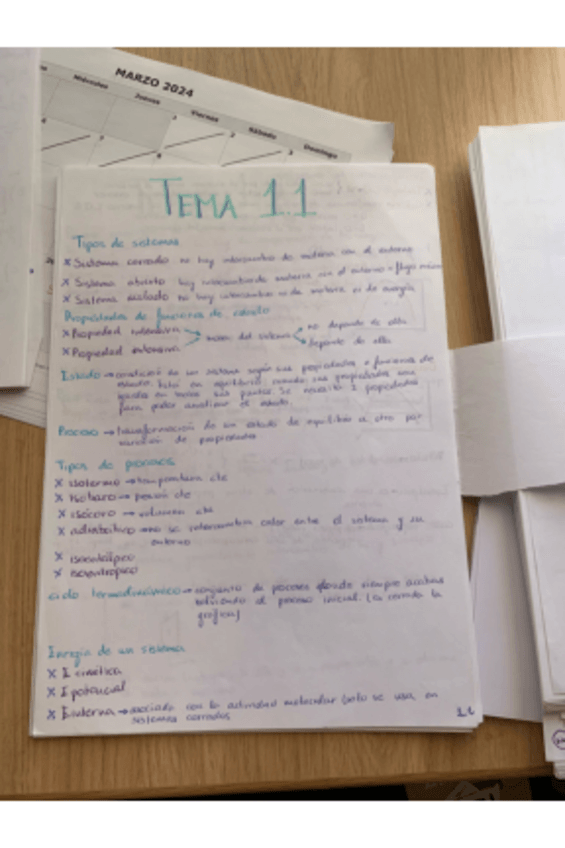 MARZO 2024
Miércoles
Jueves
Viernes
Sábado
Domingo
TEMA 1.1
Tipos de sistemas
x Sistema cerrado no hay intercambio de materia con el entorno
x Sistema abierto hay intercambio de materia con el entorno =
x Sistema aislado no hay intercambio ni de materia ni de energía
Propiedades de funciones de estado
x Propiedad intensiva no depende de ella
masa del sistema
x Propiedad extensiva depende de ella
Estado → condición de un sistema según sus propiedades o funciones de
estado. Está en equilibrio cuando sus propiedades son
iguales en todas sus partes. Se necesita 2 propiedades
para poder analizar el estado.
Proceso → transformación de un estado de equilibrio a otro por
variación de propiedades
Tipos de procesos
x isotermo → temperatura cte
x isobaro → presión cte
x isócoro → volumen cte
x adiabático → no se intercambia calor entre el sistema y su
entorno
x isoentálpico
x isoentrópico
ciclo termodinámico → conjunto de procesos donde siempre acabas
volviendo al proceso inicial. (es cerrada la
gráfica)
Energía de un sistema
x E cinética
x E potencial
x E interna → asociada con la actividad molecular (solo se usa en
sistemas cerrados